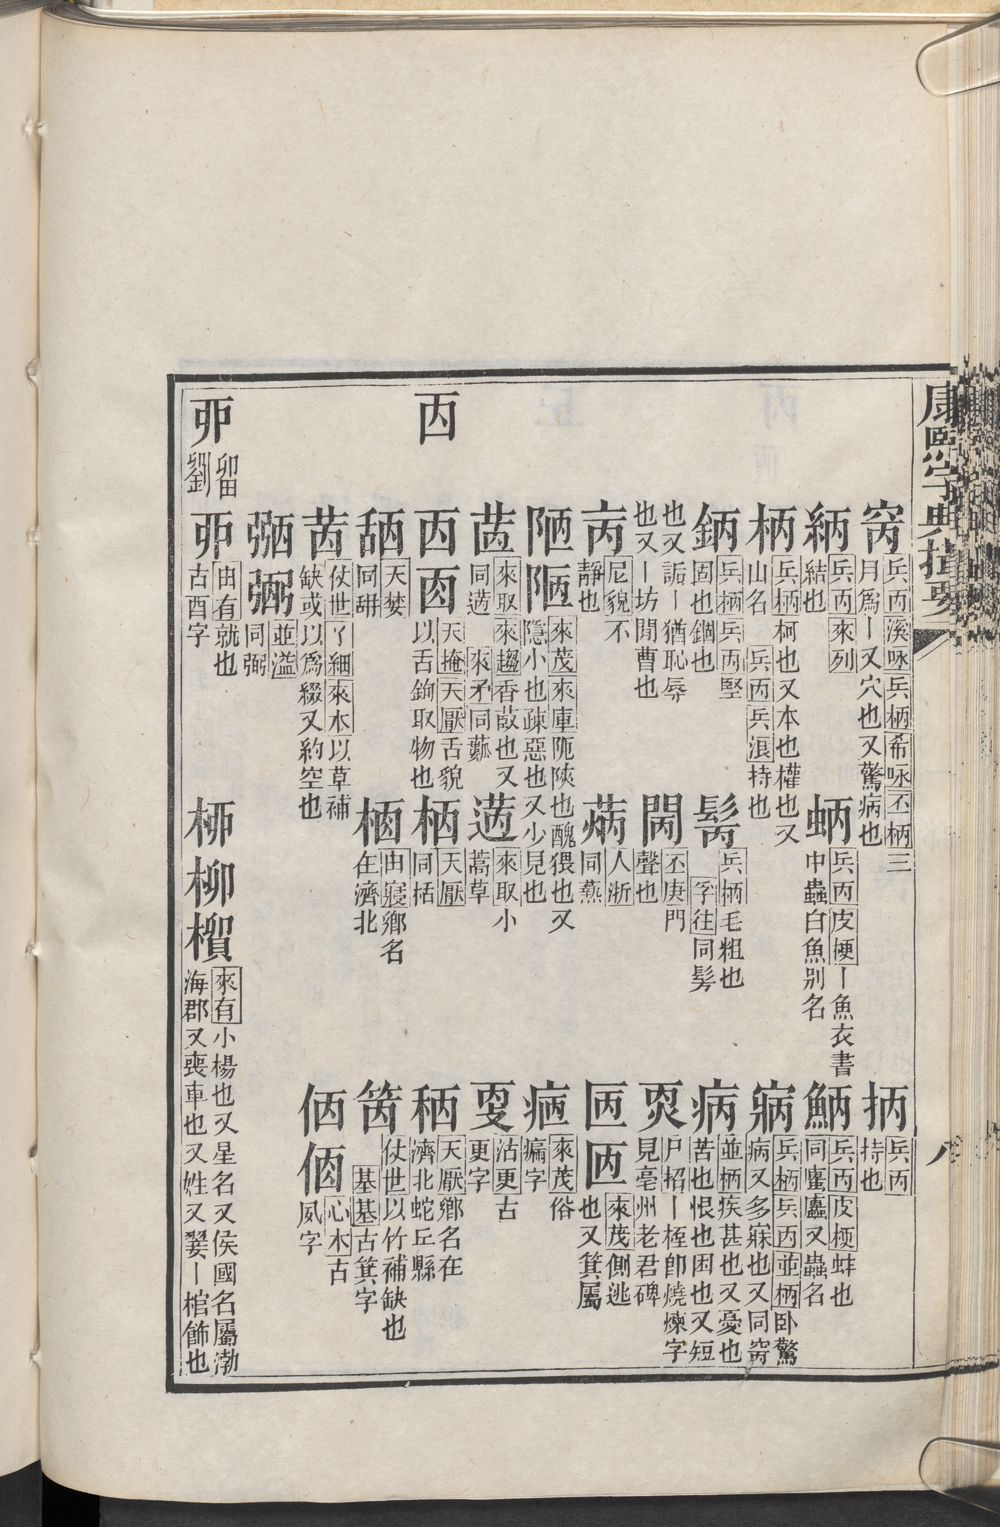 康熙字典撮要
八
窉 兵丙溪咏兵柄希咏丕柄三月爲丨又穴也又驚病也
抦 兵丙持也
綪 兵丙來列結也
蛃 兵丙皮梗丨魚衣書中蟲白魚别名
鮩 兵丙皮梗蚌也同蜜蠯又蟲名
柄 兵柄柯也又本也權也又山名兵丙兵浪持也
寎 兵柄兵丙並柄卧驚病又多寐也又同窉
鈵 兵柄兵丙堅固也錮也
髩 兵柄毛粗也孚往同髣
病 並柄疾甚也又憂也苦也恨也困也又短也又詬丨猶恥辱也又丨坊閒曹也
閍 丕庚門聲也
烎 尸招丨桎卽燒煉字見亳州老君碑
尼貌不靜也
人浙同燕
匛 來茂側逃也又箕屬
陋 來茂來車阨陝也醜猥也又隱小也疎惡也又少見也
來茂俗㾈字
來取來趨香蔎也又同䔷來矛同蘇
來取小蒿草
㪅 沽更古更字
㐁 天掩天厭舌貌以舌鉤取物也
栝 天厭同栝
天厭鄕名在濟北蛇丘縣
舑 天婪同䑙
由寑鄕名在濟北
仗世以竹補缺也基基古箕字
茵 仗世丫細來木以草補缺或以爲綴又約空也
心木古夙字
弻 並溢同弼
丣 畱劉
丣 由有就也古酉字
桺柳橮 來有小楊也又星名又侯國名屬渤海郡又喪車也又姓又翣丨棺飾也